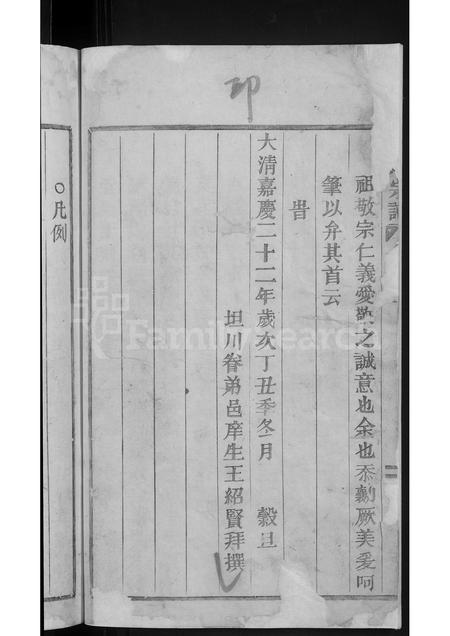 卬
祖敬宗仁義愛敬之誠意也余也忝勷厥美爰呵
筆以弁其首云
旹
大清嘉慶二十二年歲次丁丑季冬月 穀旦
坦川眷弟邑庠生王紹賢拜撰
○凡例
FamilySearch